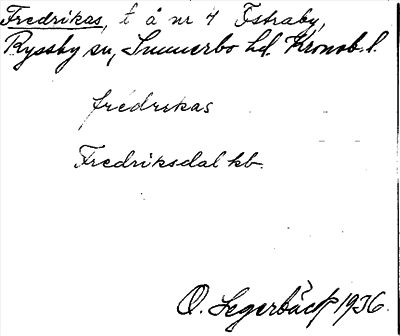 Fredrikas, t å nr 4 Fstraby,
Ryssby sn, Sunnerbo hd. Kronob. l.
fredrikas
Fredriksdal kb.
O. Segerbäck 1936.